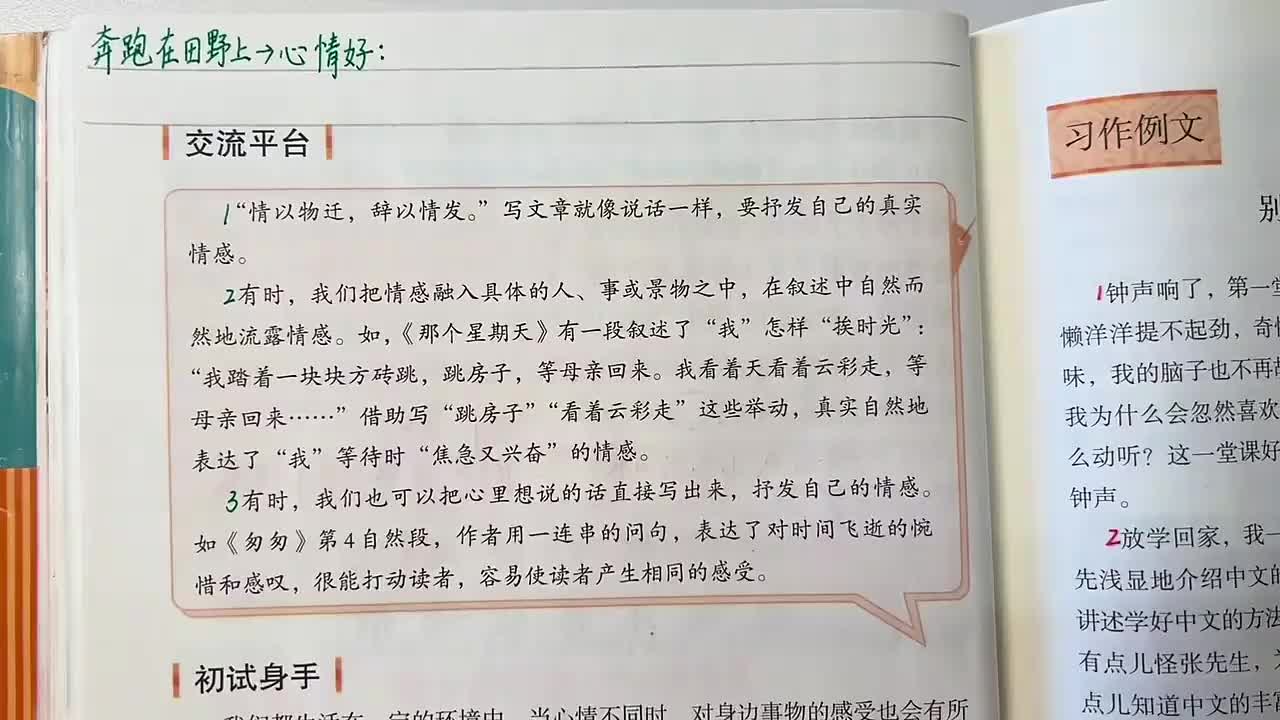 奔跑在田野上→心情好：
交流平台
1“情以物迁，辞以情发。”写文章就像说话一样，要抒发自己的真实
情感。
2有时，我们把情感融入具体的人、事或景物之中，在叙述中自然而
然地流露情感。如，《那个星期天》有一段叙述了“我”怎样“挨时光”：
“我踏着一块块方砖跳，跳房子，等母亲回来。我看着天看着云彩走，等
母亲回来……”借助写“跳房子”“看着云彩走”这些举动，真实自然地
表达了“我”等待时“焦急又兴奋”的情感。
3有时，我们也可以把心里想说的话直接写出来，抒发自己的情感。
如《匆匆》第4自然段，作者用一连串的问句，表达了对时间飞逝的惋
惜和感叹，很能打动读者，容易使读者产生相同的感受。
初试身手
我们都生活在一定的环境中，当心情不同时，对身边事物的感受也会有所
习作例文
别
1钟声响了，第一堂
懒洋洋提不起劲，奇怪
味，我的脑子也不再
我为什么会忽然喜欢
么动听？这一堂课好
钟声。
2放学回家，我一
先浅显地介绍中文的
讲述学好中文的方法
有点儿怪张先生，
点儿知道中文的丰富